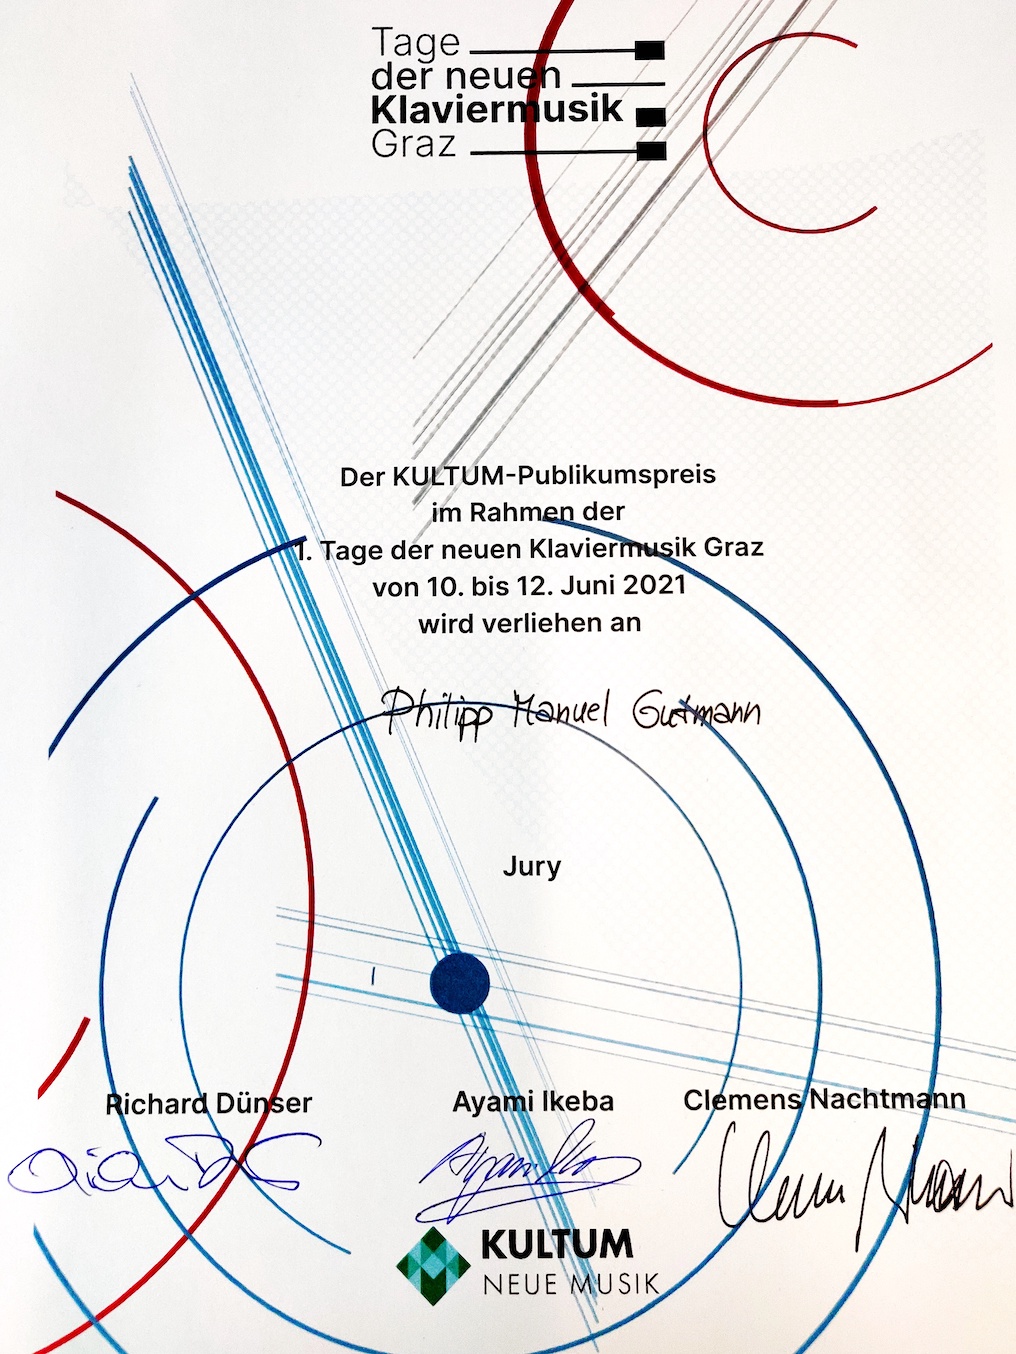 Tage
der neuen
Klaviermusik
Graz
Der KULTUM-Publikumspreis
im Rahmen der
1. Tage der neuen Klaviermusik Graz
von 10. bis 12. Juni 2021
wird verliehen an
Philipp Manuel Gutmann
Jury
Richard Dünser Ayami Ikeba Clemens Nachtmann
KULTUM
NEUE MUSIK